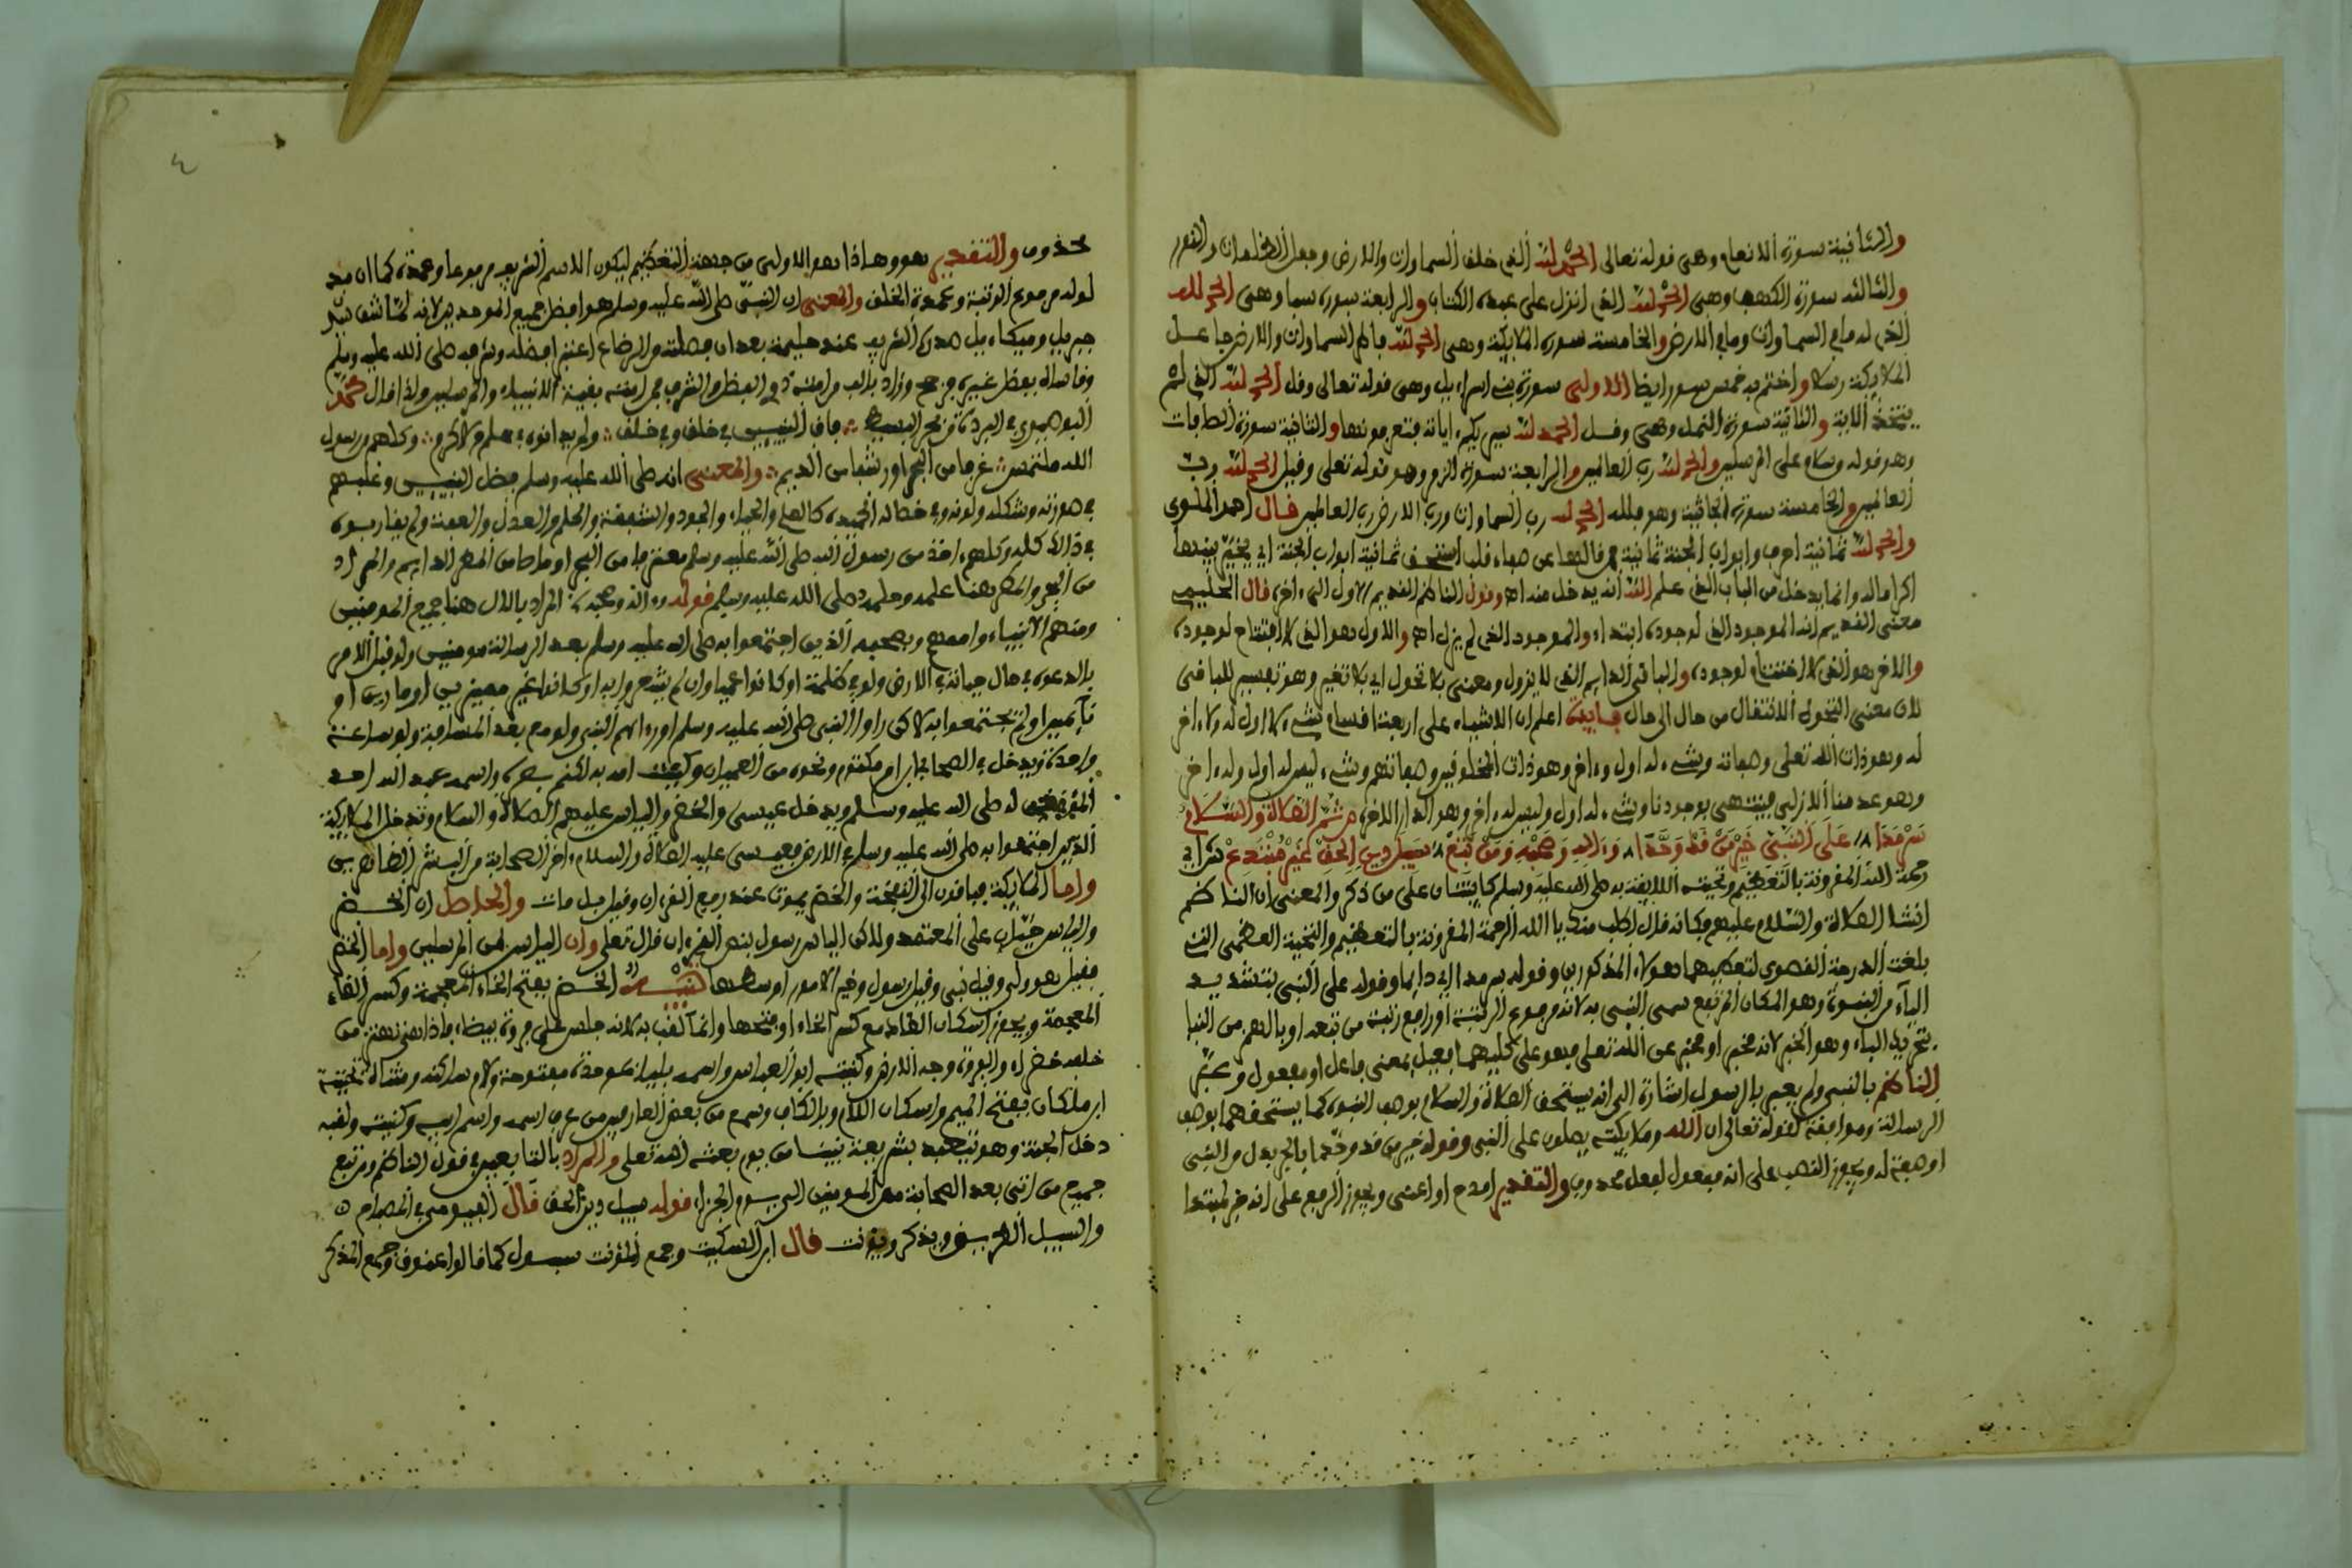 والثانية سورة الانعام وهى قوله تعالى الحمد لله الذى خلق السماوات والارض وجعل الظلمات والنور
والثالثة سورة الكهف وهى الحمد لله الذى انزل على عبده الكتاب والرابعة سورة سبا وهى الحمد لله
الذى له ما فى السماوات وما فى الارض والخامسة سورة الملايكة وهى الحمد لله فاطر السماوات والارض جاعل
الملايكة رسلا واختتم به خمس سور ايضا الاولى سورة بنى اسراءيل وهى قوله تعالى وقل الحمد لله الذى لم
يتخذ الاية والثانية سورة النمل وهى وقل الحمد لله سيريكم ءاياته فتعرفونها والثالثة سورة الصافات
وهو قوله وسلام على المرسلين والحمد لله رب العالمين والرابعة سورة الزمر وهو قوله تعلى وقيل الحمد لله رب
العالمين والخامسة سورة الجاثية وهو فلله الحمد رب السماوات ورب الارض رب العالمين قال احمد الملوى
والحمد لله ثمانية احرف وابواب الجنة ثمانية فمن قالها عن صفاء قلب استحق ثمانية ابواب الجنة اى يخير بينها
اكراما له وانما يدخل من الباب الذى علم الله انه يدخل منه اه وقول الناظم القديم الاول الى ءاخره قال الحليمى
معنى القديم انه الموجود الذى لوجوده ابتداء والموجود الذى لم يزل اه والاول هو الذى لا افتتاح لوجوده
والاخر هو الذى لا اختتام لوجوده والباقى الدايم الذى لا يزول ومعنى بلا تحول اى بلا تغير وهو تفسير للباقى
لان معنى التحول الانتقال من حال الى حال فايدة اعلم ان الاشياء على اربعة اقسام شىء لا اول له ولا ءاخر
له وهو ذات الله تعلى وصفاته وشىء له اول وءاخر وهو ذات المخلوقين وصفاتهم وشىء ليس له اول وله ءاخر
وهو عدمنا الازلى فينتهى بوجودنا وشىء له اول وليس له ءاخر وهو الدار الاخرة ص ثم الصلاة والسلام
سرمدا على النبى خير من قد وحدا وءاله وصحبه ومن تبع سبيل دين الحق غير مبتدع ش اى
رحمة الله المقرونة بالتعظيم وتحيته اللايقة به صلى الله عليه وسلم كاينتان على من ذكر والمعنى ان الناظم
انشا الصلاة والسلام عليهم فكانه قال اطلب منك يا الله الرحمة المقرونة بالتعظيم والتحية العظمى التى
بلغت الدرجة القصوى لتعطيهما هولاء المذكورين وقوله سرمدا اى دايما وقوله على النبى بتشديد
الياء من النبوة وهو المكان المرتفع سمى النبى به لانه مرفوع الرتبة او رافع رتبة من تبعه او بالهمز من النبا
بتحريك الباء وهو الخبر لانه مخبر او مخبر عن الله تعلى فهو على كليهما فعيل بمعنى فاعل او مفعول وعبر
الناظم بالنبى ولم يعبر بالرسول اشارة الى انه يستحق الصلاة والسلام بوصف النبوة كما يستحقهما بوصف
الرسالة وموافقة لقوله تعالى ان الله وملايكته يصلون على النبى وقوله خير من قد وحدا بالجر بدل من النبى
او صفة له ويجوز النصب على انه مفعول لفعل محذوف والتقدير امدح او اعنى ويجوز الرفع على انه خبر لمبتدا
محذوف والتقدير هو وهاذا هو الاولى من جهة التعظيم ليكون الاسم الشريف مرفوعا وعمدة كما ان مد
لوله مرفوع الرتبة وعمدة الخلق والمعنى ان النبى صلى الله عليه وسلم هو افضل جميع الموحدين لانه لما شق
جبريل وميكاءيل صدره الشريف عند حليمة بعد ان فصلته من الرضاع اعتبرا فضله وشرفه صلى الله عليه وسلم
وقاساه بفضل غيره فرجح وزاد بالف من امته ذوى الفضل والشرف فمن امته بقية الانبياء والمرسلين ولذا قال محمد
البوصيرى فى البردة من بحر البسيط فاق النبيين فى خلق وفى خلق ولم يدانوه فى علم ولا كرم وكلهم من رسول
الله ملتمس غرفا من البحر او رشفا من الديم والمعنى انه صلى الله عليه وسلم فضل النبيين وغلبهم
فى صورته وشكله ولونه وفى خصاله الحميدة كالعلم والحياء والجود والشفقة والحلم والعدل والعفة ولم يقاربوه
فى ذالك كله وكلهم اخذ من رسول الله صلى الله عليه وسلم مغترفا من البحر او ماصا من المطر الدايم والمراد
من البحر والمطر هنا علمه وحلمه صلى الله عليه وسلم قوله وءاله وصحبه المراد بالال هنا جميع المومنين
ومنهم الانبياء واممهم وبصحبه الذين اجتمعوا به صلى الله عليه وسلم بعد الرسالة مومنين ولو قبل الامر
بالدعوة فى حال حياته فى الارض ولو فى ظلمة او كانوا عميا وان لم يشعروا به او كانوا غير مميزين او مارين او
نايمين او لم يجتمعوا به لاكن راوا النبى صلى الله عليه وسلم او رءاهم النبى ولو مع بعد المسافة ولو ساعة
واحدة فيدخل فى الصحابى ابن ام مكتوم ونحوه من العميان
له صلى الله عليه وسلم ويدخل عيسى والخضر والياس عليهم الصلاة والسلام وتدخل الملايكة
الذين اجتمعوا به صلى الله عليه وسلم فى الارض فعيسى عليه الصلاة والسلام ءاخر الصحابة من البشر الظاهرين
واما الملايكة فباقون الى النفخة والخضر يموت عند رفع القرءان وقيل بل مات والحاصل ان الخضر
والياس حيان على المعتمد ولاكن الياس رسول بنص القرءان قال تعلى وان الياس لمن المرسلين واما الخضر
فقيل هو ولى وقيل نبى وقيل رسول وخير الامور اوسطها تنبيه الخضر بفتح الخاء المعجمة وكسر الضاء
المعجمة ويجوز اسكان الضاد مع كسر الخاء او فتحها وانما لقب به لانه جلس على فروة بيضاء فاذا هى تهتز من
خلفه خضراء والفروة وجه الارض وكنيته ابو العباس واسمه بليا بموحدة مفتوحة ولام ساكنة ومثناة تحتية
ابن ملكان بفتح الميم واسكان اللام وبالكاف وسمع من بعض العارفين من عرف اسمه واسم ابيه وكنيته ولقبه
دخل الجنة وهو يتعبد بشريعة نبينا من يوم بعثه الله تعلى والمراد بالتابعين فى قول الناظم ومن تبع
جميع من اتى بعد الصحابة من المومنين الى يوم الجزاء قوله سبيل دين الحق قال الفيومى فى المصباح
والسبيل الطريق ويذكر ويؤنث قال ابن السكيت وجمع المؤنث سبول كما قالوا عنوق وجمع المذكر
٤